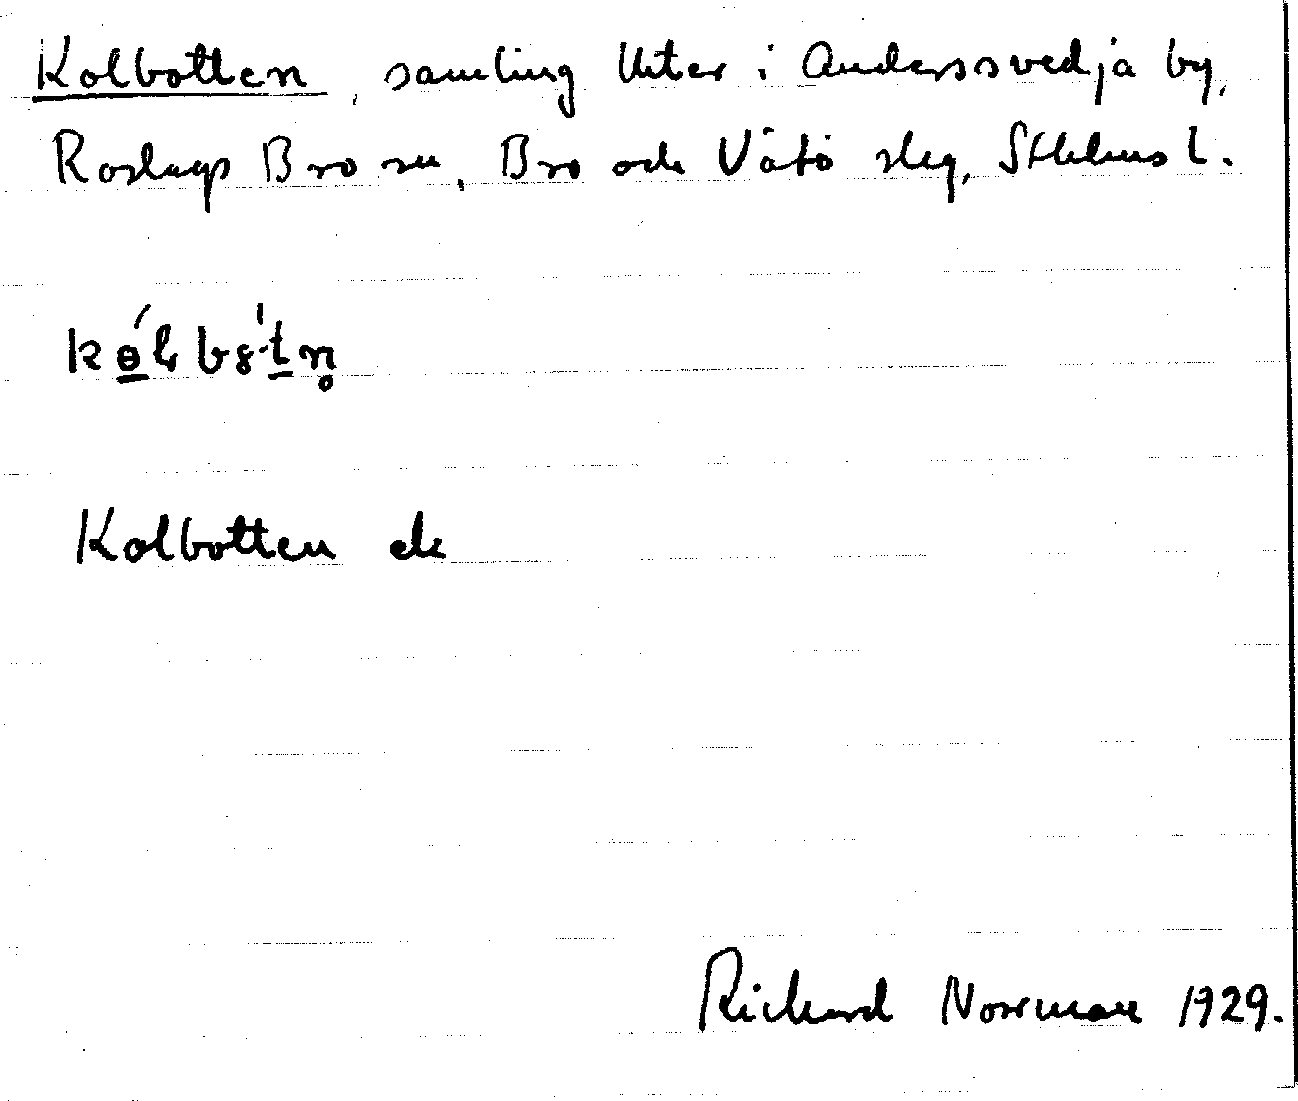 Kolbotten, samling tomter i Anderssvedja by,
Roslags Bro sn, Bro och Vätö slag, Sthlms l.
Kolbotten ek
Richard Norrman 1929.